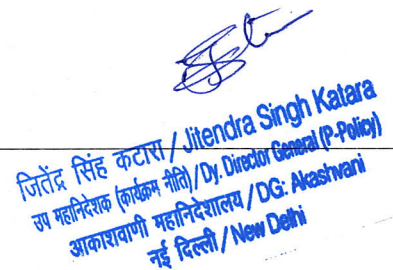 जितेंद्र सिंह कटारा / Jitendra Singh Katara
उप महानिदेशक (कार्यक्रम नीति) / Dy. Director General (P-Policy)
आकाशवाणी महानिदेशालय / DG: Akashvani
नई दिल्ली / New Delhi